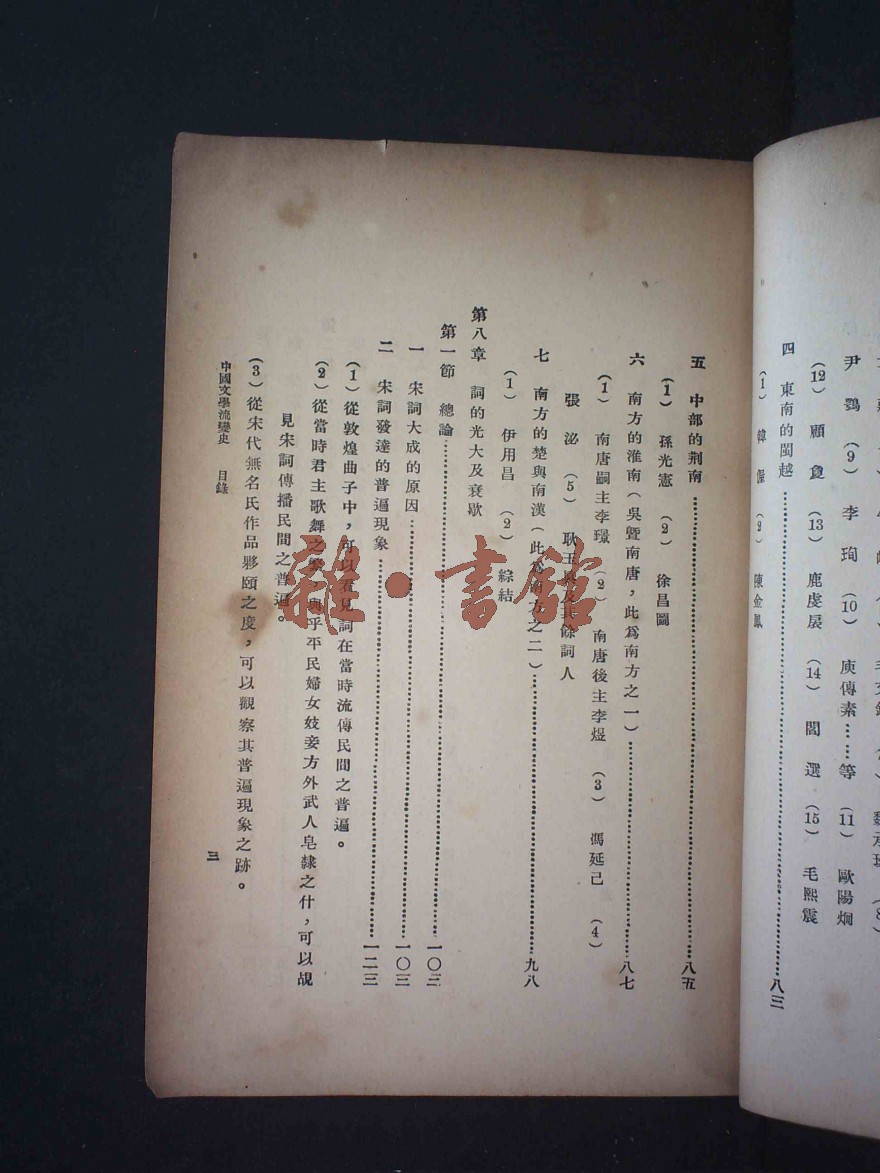 尹鶚 (9) 李珣 (10) 庾傳素……等 (11) 歐陽炯
(12) 顧敻 (13) 鹿虔扆 (14) 閻選 (15) 毛熙震
四 東南的閩越……八三
(1) 韓偓 (2) 陳金鳳
五 中部的荆南……八五
(1) 孫光憲 (2) 徐昌圖
六 南方的淮南(吳暨南唐,此爲南方之一)……八七
(1) 南唐嗣主李璟 (2) 南唐後主李煜 (3) 馮延己 (4)
張泌 (5) 耿玉眞及其餘詞人
七 南方的楚與南漢(此爲南方之二)……九八
(1) 伊用昌 (2) 綜結
第八章 詞的光大及衰歇
第一節 總論……一〇三
一 宋詞大成的原因……一〇三
二 宋詞發達的普遍現象……一二三
(1)從敦煌曲子中,可以看見詞在當時流傳民間之普遍。
(2)從當時君主歌舞之繁,與乎平民婦女妓妾方外武人皂隸之什,可以覘
見宋詞傳播民間之普遍。
(3)從宋代無名氏作品夥頤之度,可以觀察其普遍現象之跡。
中國文學流變史 目錄 三
雜·書館